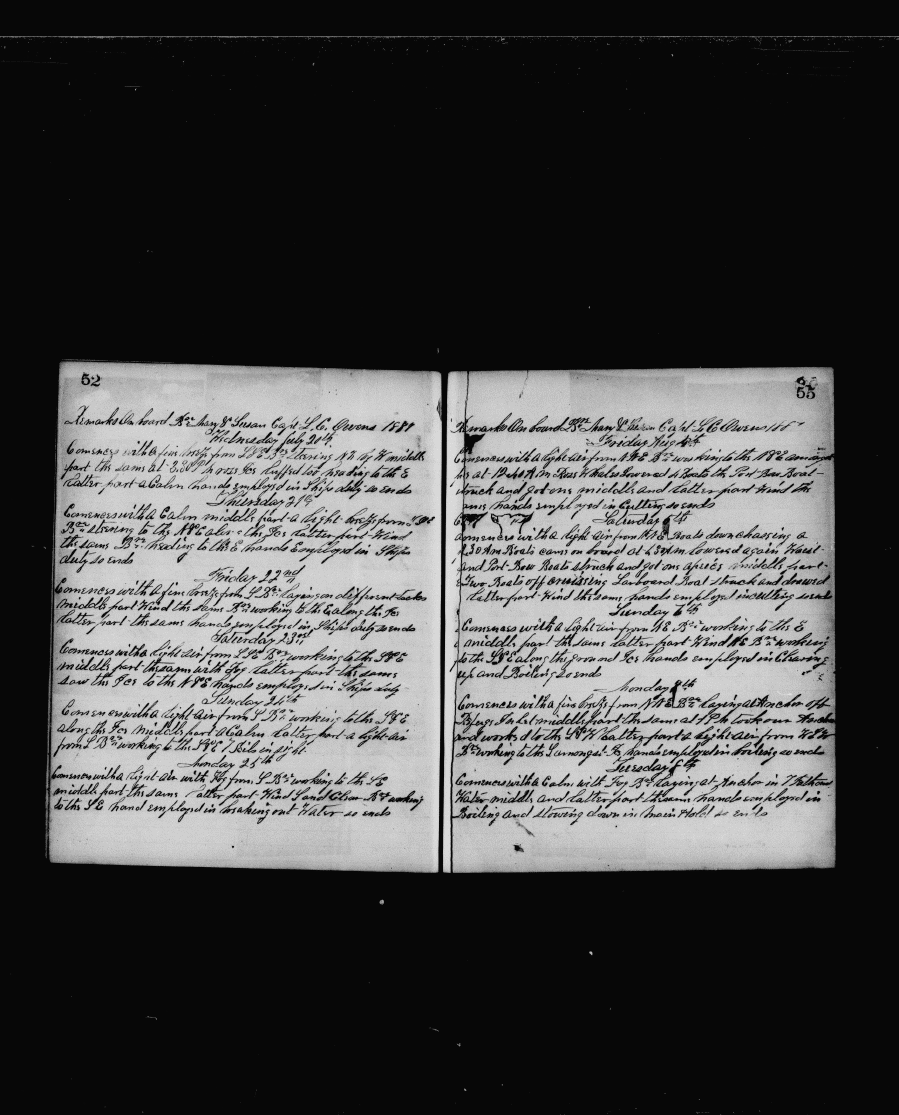 52
Remarks On board Bar Mary & Susan Capt L.C. Owens 1881
Wednesday July 20th
Comences with a fine breeze from S&E Bar Stearing NE by N middle
part the sams at 2.30 PM across Ice luffed too heading to the E
Latter part a Calm hands employed in Ships duty so ends
Thursday 21st
Comences with a Calm middle part a light breeze from S&E
Bar stearing to the N&E along the Ice Latter part Wind
the sams Bar heading to the E hands Employed in Ships
duty so ends
Friday 22nd
Comences with a fine breeze from S Bar laying on different tacks
middle part Wind the sams Bar working to the E along the Ice
Latter part the sams hands employed in Ships duty so ends
Saturday 23rd
Comences with a light air from S&E Bar working to the S&E
middle part the sams with Fog Latter part the sams
saw the Ice to the N&E hands employed in Ships duty
Sunday 24th
Comences with a light air from S Bar working to the S&E
along the Ice middle part a Calm Latter part a light air
from S Bar working to the S&E 1 Sail in sight
Monday 25th
Comences with a light air with Fog from S Bar working to the SE
middle part the sams Latter part Wind S and Clear Bar working
to the SE hand employed in breaking out Water so ends
55
Remarks On board Bar Mary & Susan Capt L C Owens
Friday Aug 5th
Comences with a light air from N&E Bar working to the N&E amongst
Ice at 12.40 A.m. Rais Whales Lowered 4 Boats the Port Bow Boat
struck and got ons middle and Latter part Wind the
sams hands employed in Cutting so ends
Saturday 6th
Comences with a light air from N&E Boats down chasing a
2.30 Am Boats came on board at 4.30 Am lowered again Waist
and Port Bow Boats struck and got ons apiece middle part
Two Boats off cruissing Larboard Boat struck and drowed
Latter part Wind the sams hands employed in cutting so ends
Sunday 7th
Comences with a light air from NE Bar working to the E
middle part the sams Latter part Wind NE Bar working
to the S&E along the ground Ice hands employed in Clearing
up and Boiling so ends
Monday 8th
Comences with a fine breeze from N&E Bar laying at Anchor off
Inlet middle part the sams at 1 Pm took our Anchor
and worked to the S&W Latter part a light air from W&N
Bar working to the S amongst Ice hands employed in Boiling so ends
Tuesday 9th
Comences with a Calm with Fog Bar laying at Anchor in 7 Fathoms
Water middle and Latter part the sams hands employed in
Boiling and stowing down in main Hold so ends